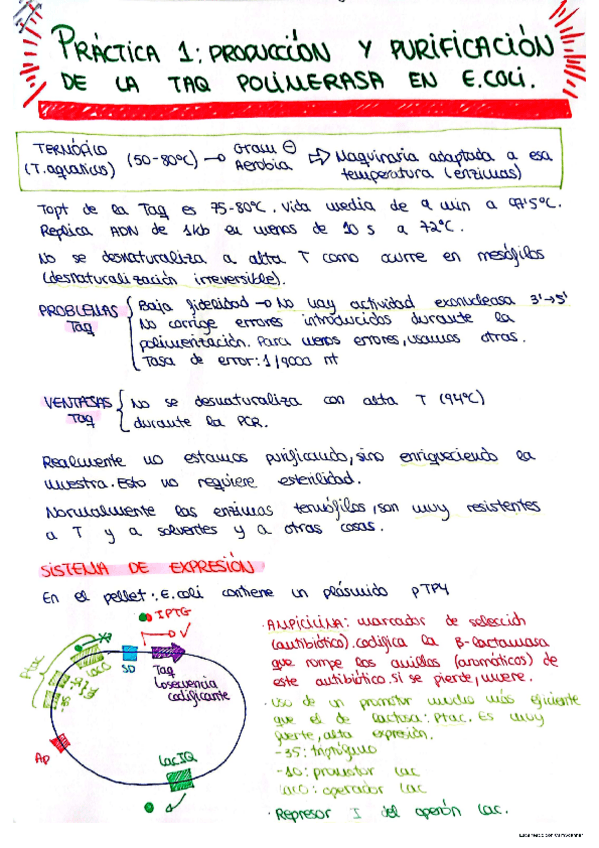 PRÁCTICA 1: PRODUCCIÓN Y PURIFICACIÓN
DE LA TAQ POLIMERASA EN E.COLI.
TERMÓFILO
(T.aquaticus)
(50-80ºC)
Gram ⊖
Aerobia
Maquinaria adaptada a esa
temperatura (enzimas)
Topt de la Taq es 75-80ºC. Vida media de 9 min a 97'5ºC.
Replica ADN de 1kb en menos de 10 s a 72ºC.
No se desnaturaliza a alta T como ocurre en mesófilos
(desnaturalización irreversible).
PROBLEMAS
Taq
Baja fidelidad → No hay actividad exonucleasa 3'→5'
No corrige errores introducidos durante la
polimerización. Para menos errores, usamos otras.
Tasa de error: 1/9000 nt
VENTAJAS
Taq
No se desnaturaliza con alta T (94ºC)
durante la PCR.
Realmente no estamos purificando, sino enriqueciendo la
muestra. Esto no requiere esterilidad.
Normalmente las enzimas termófilas, son muy resistentes
a T y a solventes y a otras cosas.
SISTEMA DE EXPRESIÓN
En el pellet: E.coli contiene un plásmido pTP4
IPTG
Ptac
-35
-10
lacO
SD
Taq
secuencia
codificante
Ap
lacIQ
· AMPICILINA: marcador de selección
(antibiótico). Codifica la β-lactamasa
que rompe los anillos (aromáticos) de
este antibiótico. Si se pierde, muere.
· Uso de un promotor mucho más eficiente
que el de lactosa: Ptac. Es muy
fuerte, alta expresión.
-35: triptófano
-10: promotor lac
lacO: operador lac
· Represor I del operón lac.